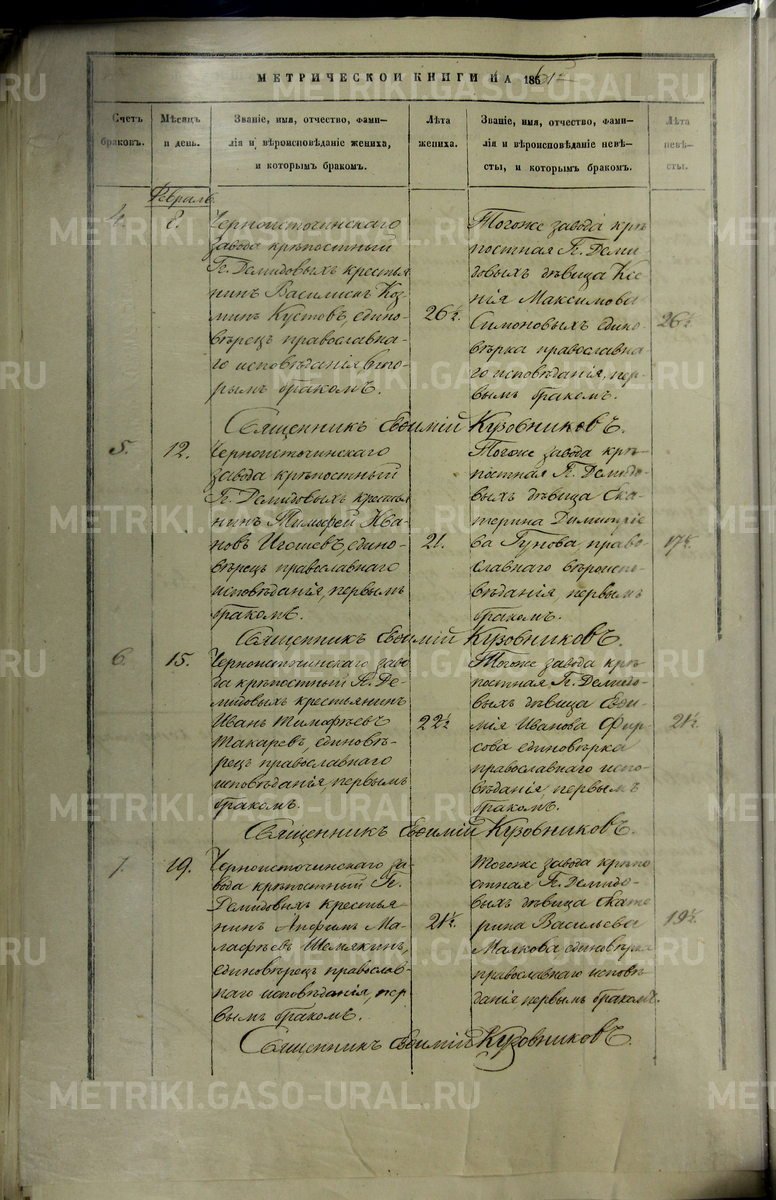 МЕТРИЧЕСКОЙ КНИГИ НА 1861
Счетъ браковъ.
Мѣсяцъ и день.
Званіе, имя, отчество, фами-
лія и вѣроисповѣданіе жениха,
и которымъ бракомъ.
Лѣта жениха.
Званіе, имя, отчество, фами-
лія и вѣроисповѣданіе невѣ-
сты, и которымъ бракомъ.
Лѣта невѣ-
сты.
Февраль.
4.
8.
Черноисточинскаго
завода крѣпостный
Гг. Демидовыхъ крестья
нинъ Василискъ Коз
минъ Кустовъ, едино-
вѣрецъ православна-
го исповѣданія, вто-
рымъ бракомъ.
26½.
Тогоже завода крѣ
постная Гг. Деми
довыхъ дѣвица Ксе
нія Максимова
Симоновыхъ едино
вѣрка православна-
го исповѣданія, пер-
вымъ бракомъ.
26½
Священникъ Евѳимій Кузовниковъ.
5.
12.
Черноисточинскаго
завода крѣпостный
Гг. Демидовыхъ крестья
нинъ Тимофей Ива
новъ Игошевъ, едино-
вѣрецъ православнаго
исповѣданія, первымъ
бракомъ.
21.
Тогоже завода крѣ-
постная Гг. Демидо-
выхъ дѣвица Ека-
терина Димитріе
ва Гунова, право-
славнаго вѣроиспо-
вѣданія, первымъ
бракомъ.
17½
Священникъ Евѳимій Кузовниковъ.
6.
15.
Черноисточинскаго заво
да крѣпостный Гг. Де-
мидовыхъ крестьянинъ
Иванъ Тимофѣевъ
Макаревъ, единовѣ-
рецъ православнаго
исповѣданія, первымъ
бракомъ.
22½
Тогоже завода крѣ-
постная Гг. Демидо-
выхъ дѣвица Евѳи-
мія Иванова Фир-
сова единовѣрка
православнаго испо-
вѣданія, первымъ
бракомъ.
21½
Священникъ Евѳимій Кузовниковъ.
7.
19.
Черноисточинскаго за-
вода крѣпостный Гг.
Демидовыхъ крестья-
нинъ Анфимъ Ма-
лафѣевъ Шемякинъ,
единовѣрецъ православ-
наго исповѣданія, пер
вымъ бракомъ.
21½
Тогоже завода крѣпо
стная Гг. Демидо-
выхъ дѣвица Екате
рина Васильева
Малкова единовѣрка
православнаго исповѣ
данія первымъ бракомъ.
19½
Священникъ Евѳимій Кузовниковъ.
METRIKI.GASO-URAL.RU